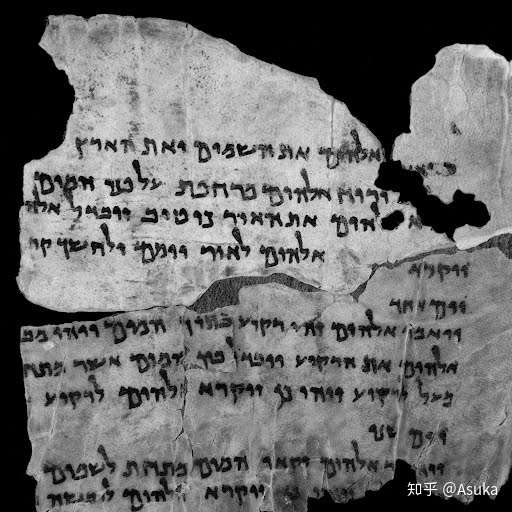 אלהים את השמים ואת הארץ
ורוח אלהים מרחפת על פני המים
אלהים את האור כי טוב ויבדל אלה
ויקרא אלהים לאור יומם ולחשך קר
יום אחד
ויאמר אלהים יהי רקיע בתוך המים ויהי מב
אלהים את הרקיע ויבדל בין המים אשר מתח
מעל לרקיע ויהי כן ויקרא אלהים לרקיע
יום שני
אלהים יקאו המים מתחת לשמים
כן ויקרא אלהים ליבשה
知乎 @Asuka